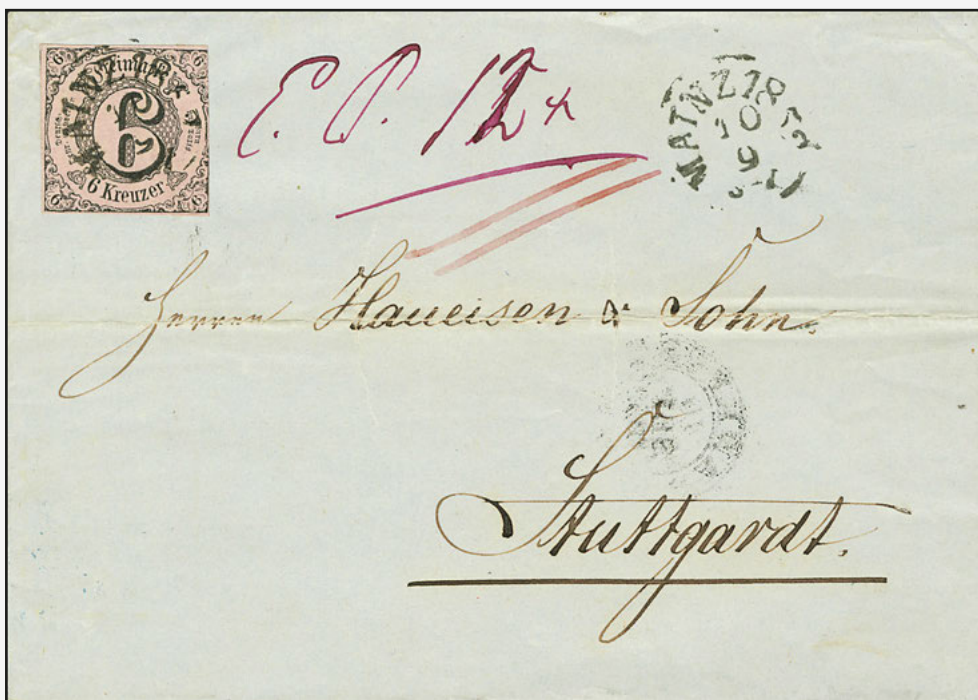 MAINZ 18
6
6 Kreuzer
E. P. 12 x
MAINZ 1852
10
9
Herren Haueisen & Sohn.
Stuttgardt.